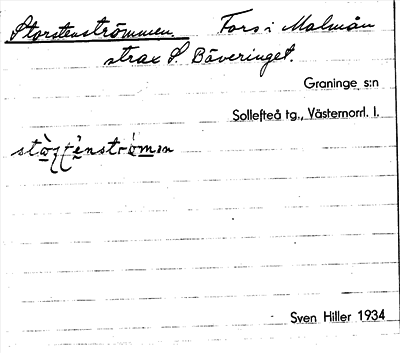 Storstenströmmen Fors i Malmån
strax S. Bäveringet.
Graninge s:n
Sollefteå tg., Västernorrl. l.
Sven Hiller 1934